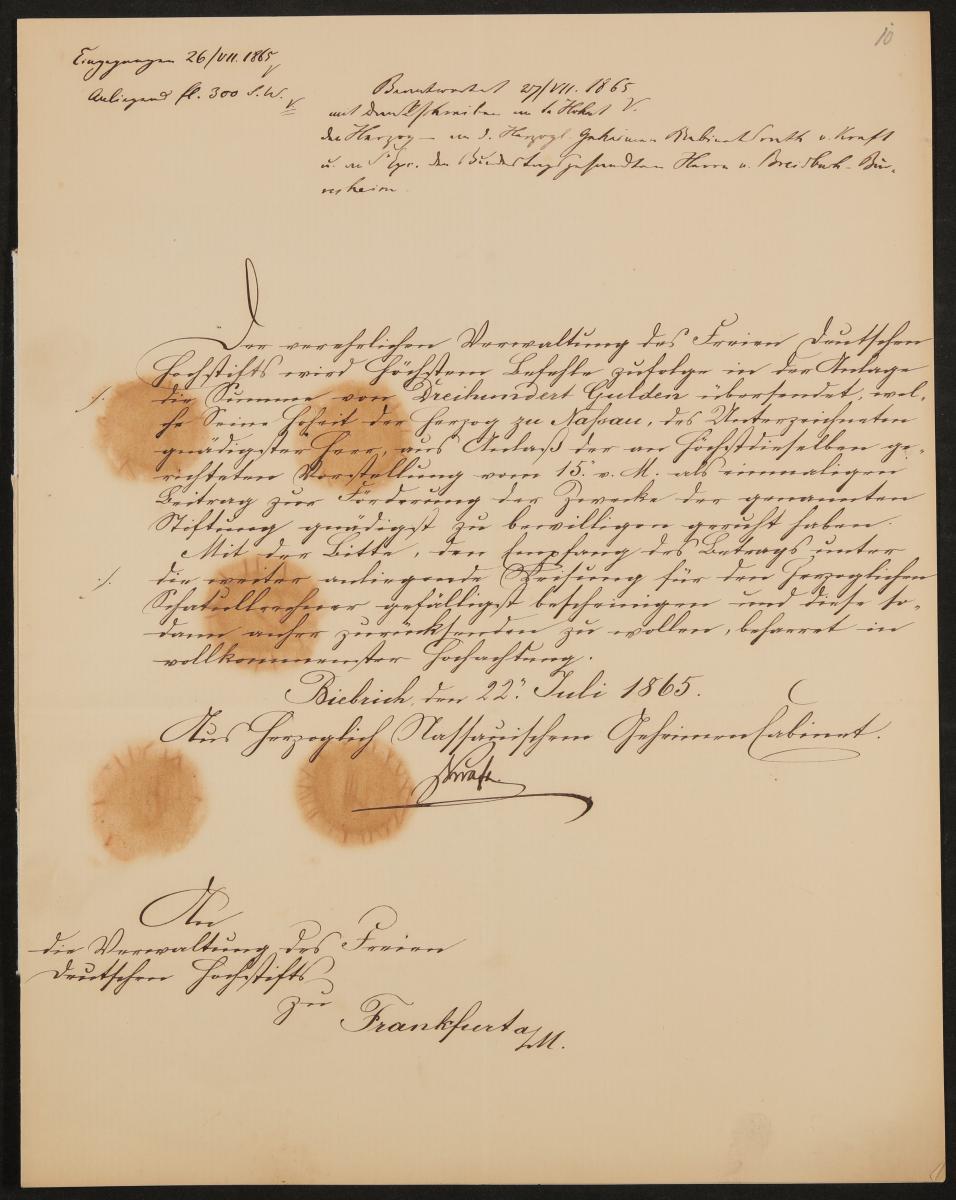 10
Eingegangen 26/VII. 1865
Anliegend fl. 300 S. W.
Beantwortet 27/VII. 1865
mit Dankschreiben an Se Hoheit
den Herzog – an d. Herzogl. Geheimen Kabinetsrath v. Kraft
u. an S. Exc. den Bundestagsgesandten Herrn v. Breidbach-Bür-
resheim.
Der verehrlichen Verwaltung des Freien Deutschen
Hochstifts wird Höchstem Befehle zufolge in der Anlage
die Summe von Dreihundert Gulden übersendet, wel-
che Seine Hoheit der Herzog zu Nassau, des Unterzeichneten
gnädigster Herr, aus Anlaß der an Höchstdieselben ge-
richteten Vorstellung vom 15. v. M. als einmaligen
Beitrag zur Förderung der Zwecke der genannten
Stiftung gnädigst zu bewilligen geruht haben.
Mit der Bitte, den Empfang des Betrags unter
die weiter anliegende Weisung für den Herzoglichen
Schatullrechner gefälligst bescheinigen und diese so-
dann anher zurücksenden zu wollen, beharret in
vollkommenster Hochachtung.
Biebrich, den 22. Juli 1865.
Aus Herzoglich Nassauischem Geheimen Cabinet.
Kraft.
An
die Verwaltung des Freien
Deutschen Hochstifts
zu
Frankfurt a/M.